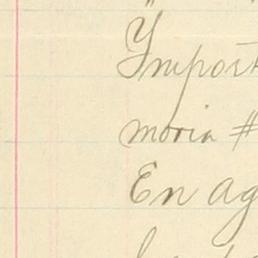 Y
Import
moria #
En ag